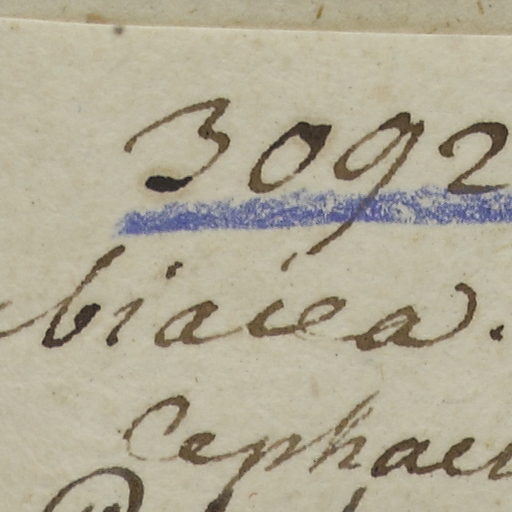 3092
biacea.
Cephae